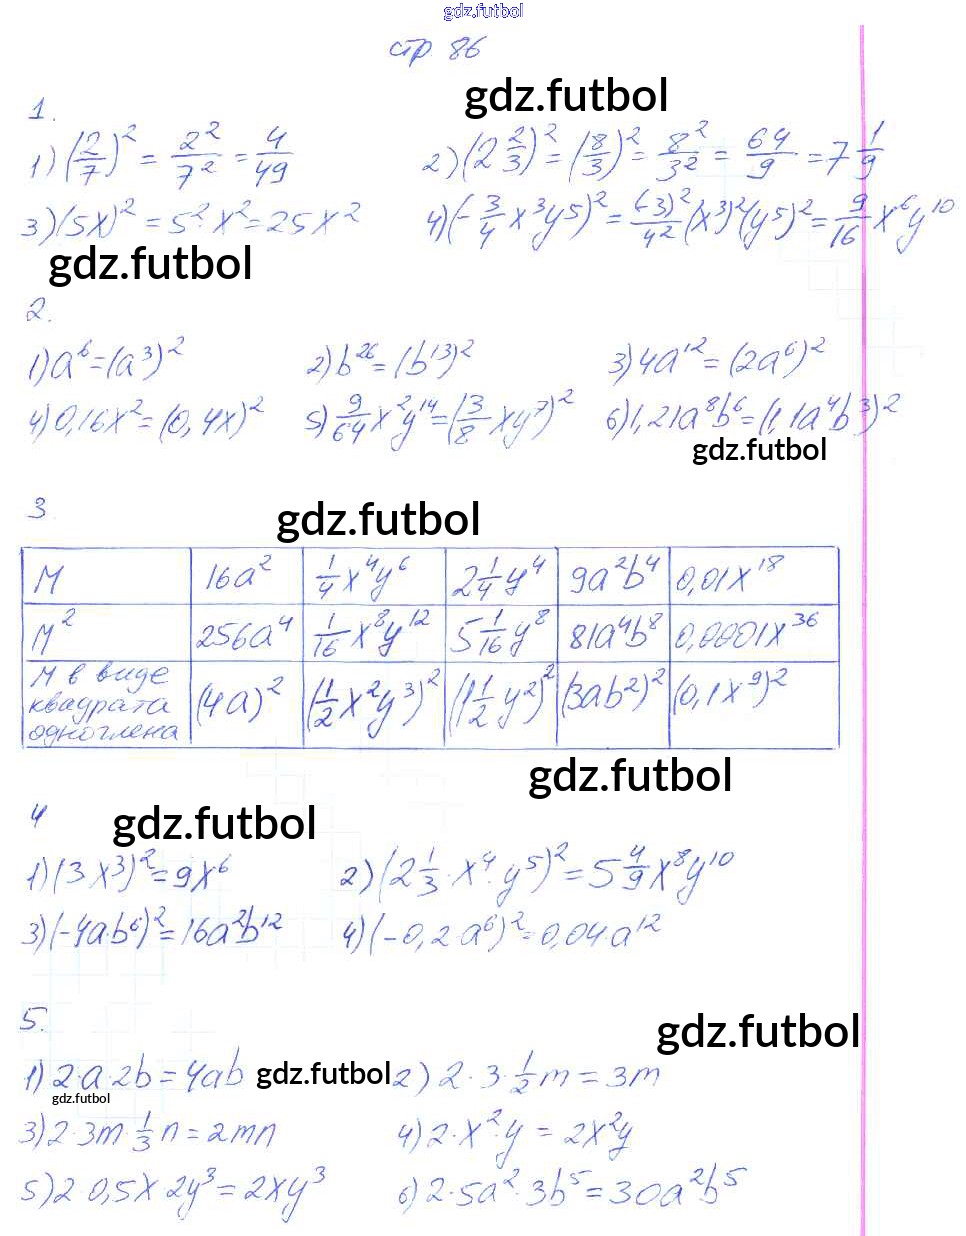 gdz.futbol
стр 86
gdz.futbol
1.
1) (2/7)² = 2²/7² = 4/49 2) (2 2/3)² = (8/3)² = 8²/3² = 64/9 = 7 1/9
3) (5x)² = 5²·x² = 25x² 4) (-3/4 x³y⁵)² = (-3)²/4² (x³)²(y⁵)² = 9/16 x⁶y¹⁰
gdz.futbol
2.
1) a⁶ = (a³)² 2) b²⁶ = (b¹³)² 3) 4a¹² = (2a⁶)²
4) 0,16x² = (0,4x)² 5) 9/64 x²y¹⁴ = (3/8 xy⁷)² 6) 1,21a⁸b⁶ = (1,1a⁴b³)²
gdz.futbol
3.
gdz.futbol
M 16a² 1/4 x⁴y⁶ 2 1/4 y⁴ 9a²b⁴ 0,01x¹⁸
M² 256a⁴ 1/16 x⁸y¹² 5 1/16 y⁸ 81a⁴b⁸ 0,0001x³⁶
M в виде
квадрата (4a)² (1/2 x²y³)² (1 1/2 y²)² (3ab²)² (0,1x⁹)²
одночлена
gdz.futbol
4
gdz.futbol
1) (3x³)² = 9x⁶ 2) (2 1/3·x⁴·y⁵)² = 5 4/9 x⁸y¹⁰
3) (-4a·b⁶)² = 16a²b¹² 4) (-0,2·a⁶)² = 0,04·a¹²
5.
gdz.futbol
1) 2·a·2b = 4ab gdz.futbol 2) 2·3·1/2 m = 3m
gdz.futbol
3) 2·3m·1/3 n = 2mn 4) 2·x²·y = 2x²y
5) 2 0,5x·2y³ = 2xy³ 6) 2·5a²·3b⁵ = 30a²b⁵